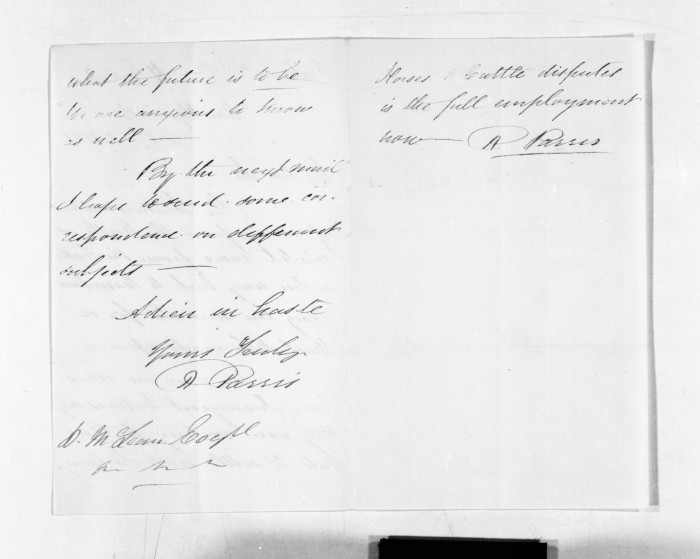 what the future is to be
We are anxious to know
as well —
By the next mail
I hope to send some cor-
respondence on different
subjects —
Adieu in haste
Yours Truly
R Parris
D. McLean Esqr
Horses & Cattle disputes
is the full employment
now — R Parris